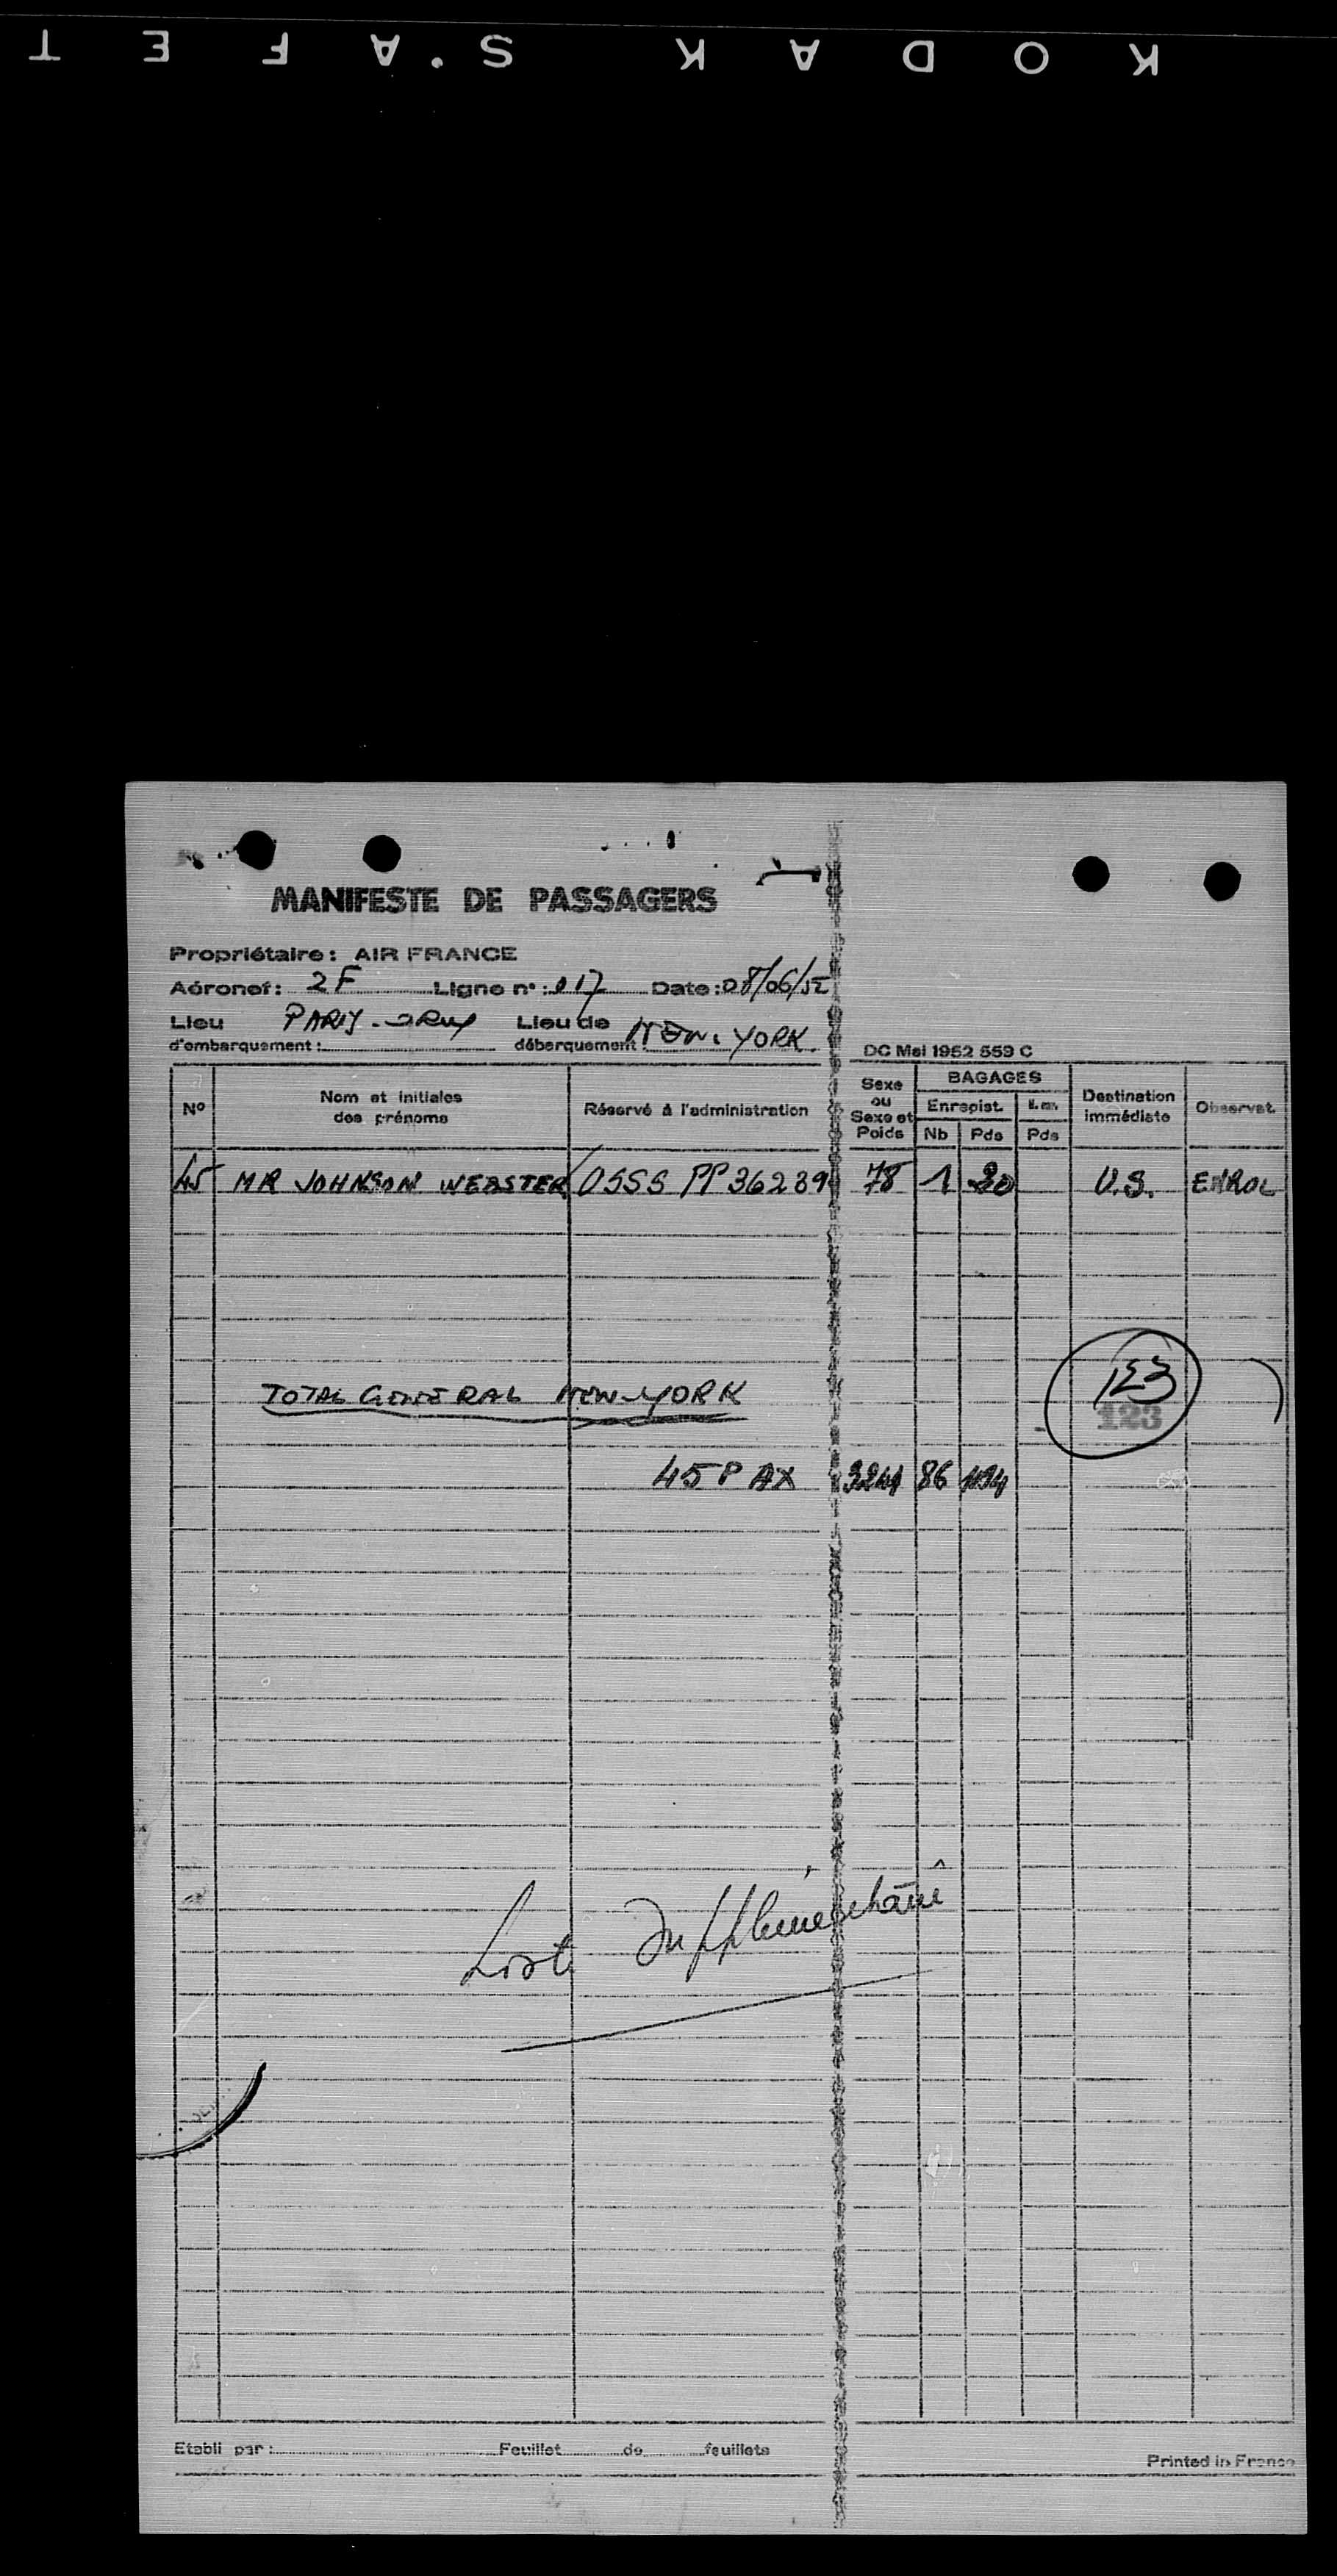 KODAK S'AFET
MANIFESTE DE PASSAGERS
Propriétaire: AIR FRANCE
Aéronef: 2F Ligne n°: 017 Date: 08/06/52
Lieu d'embarquement: PARIS-ORLY Lieu de débarquement: NEW-YORK
DC Mai 1952 559 C
N° Nom et initiales des prénoms Réservé à l'administration Sexe ou Sexe et Poids BAGAGES Enregist. Nb Pds Pds Destination immédiate Observat.
45 MR JOHNSON WEBSTER PP 36289 78 1 20 U.S. ENROL
123
123
TOTAL GENERAL NEW-YORK
45 PAX 86
Liste Supplémentaire
Etabli par: Feuillet de feuillets
Printed in France